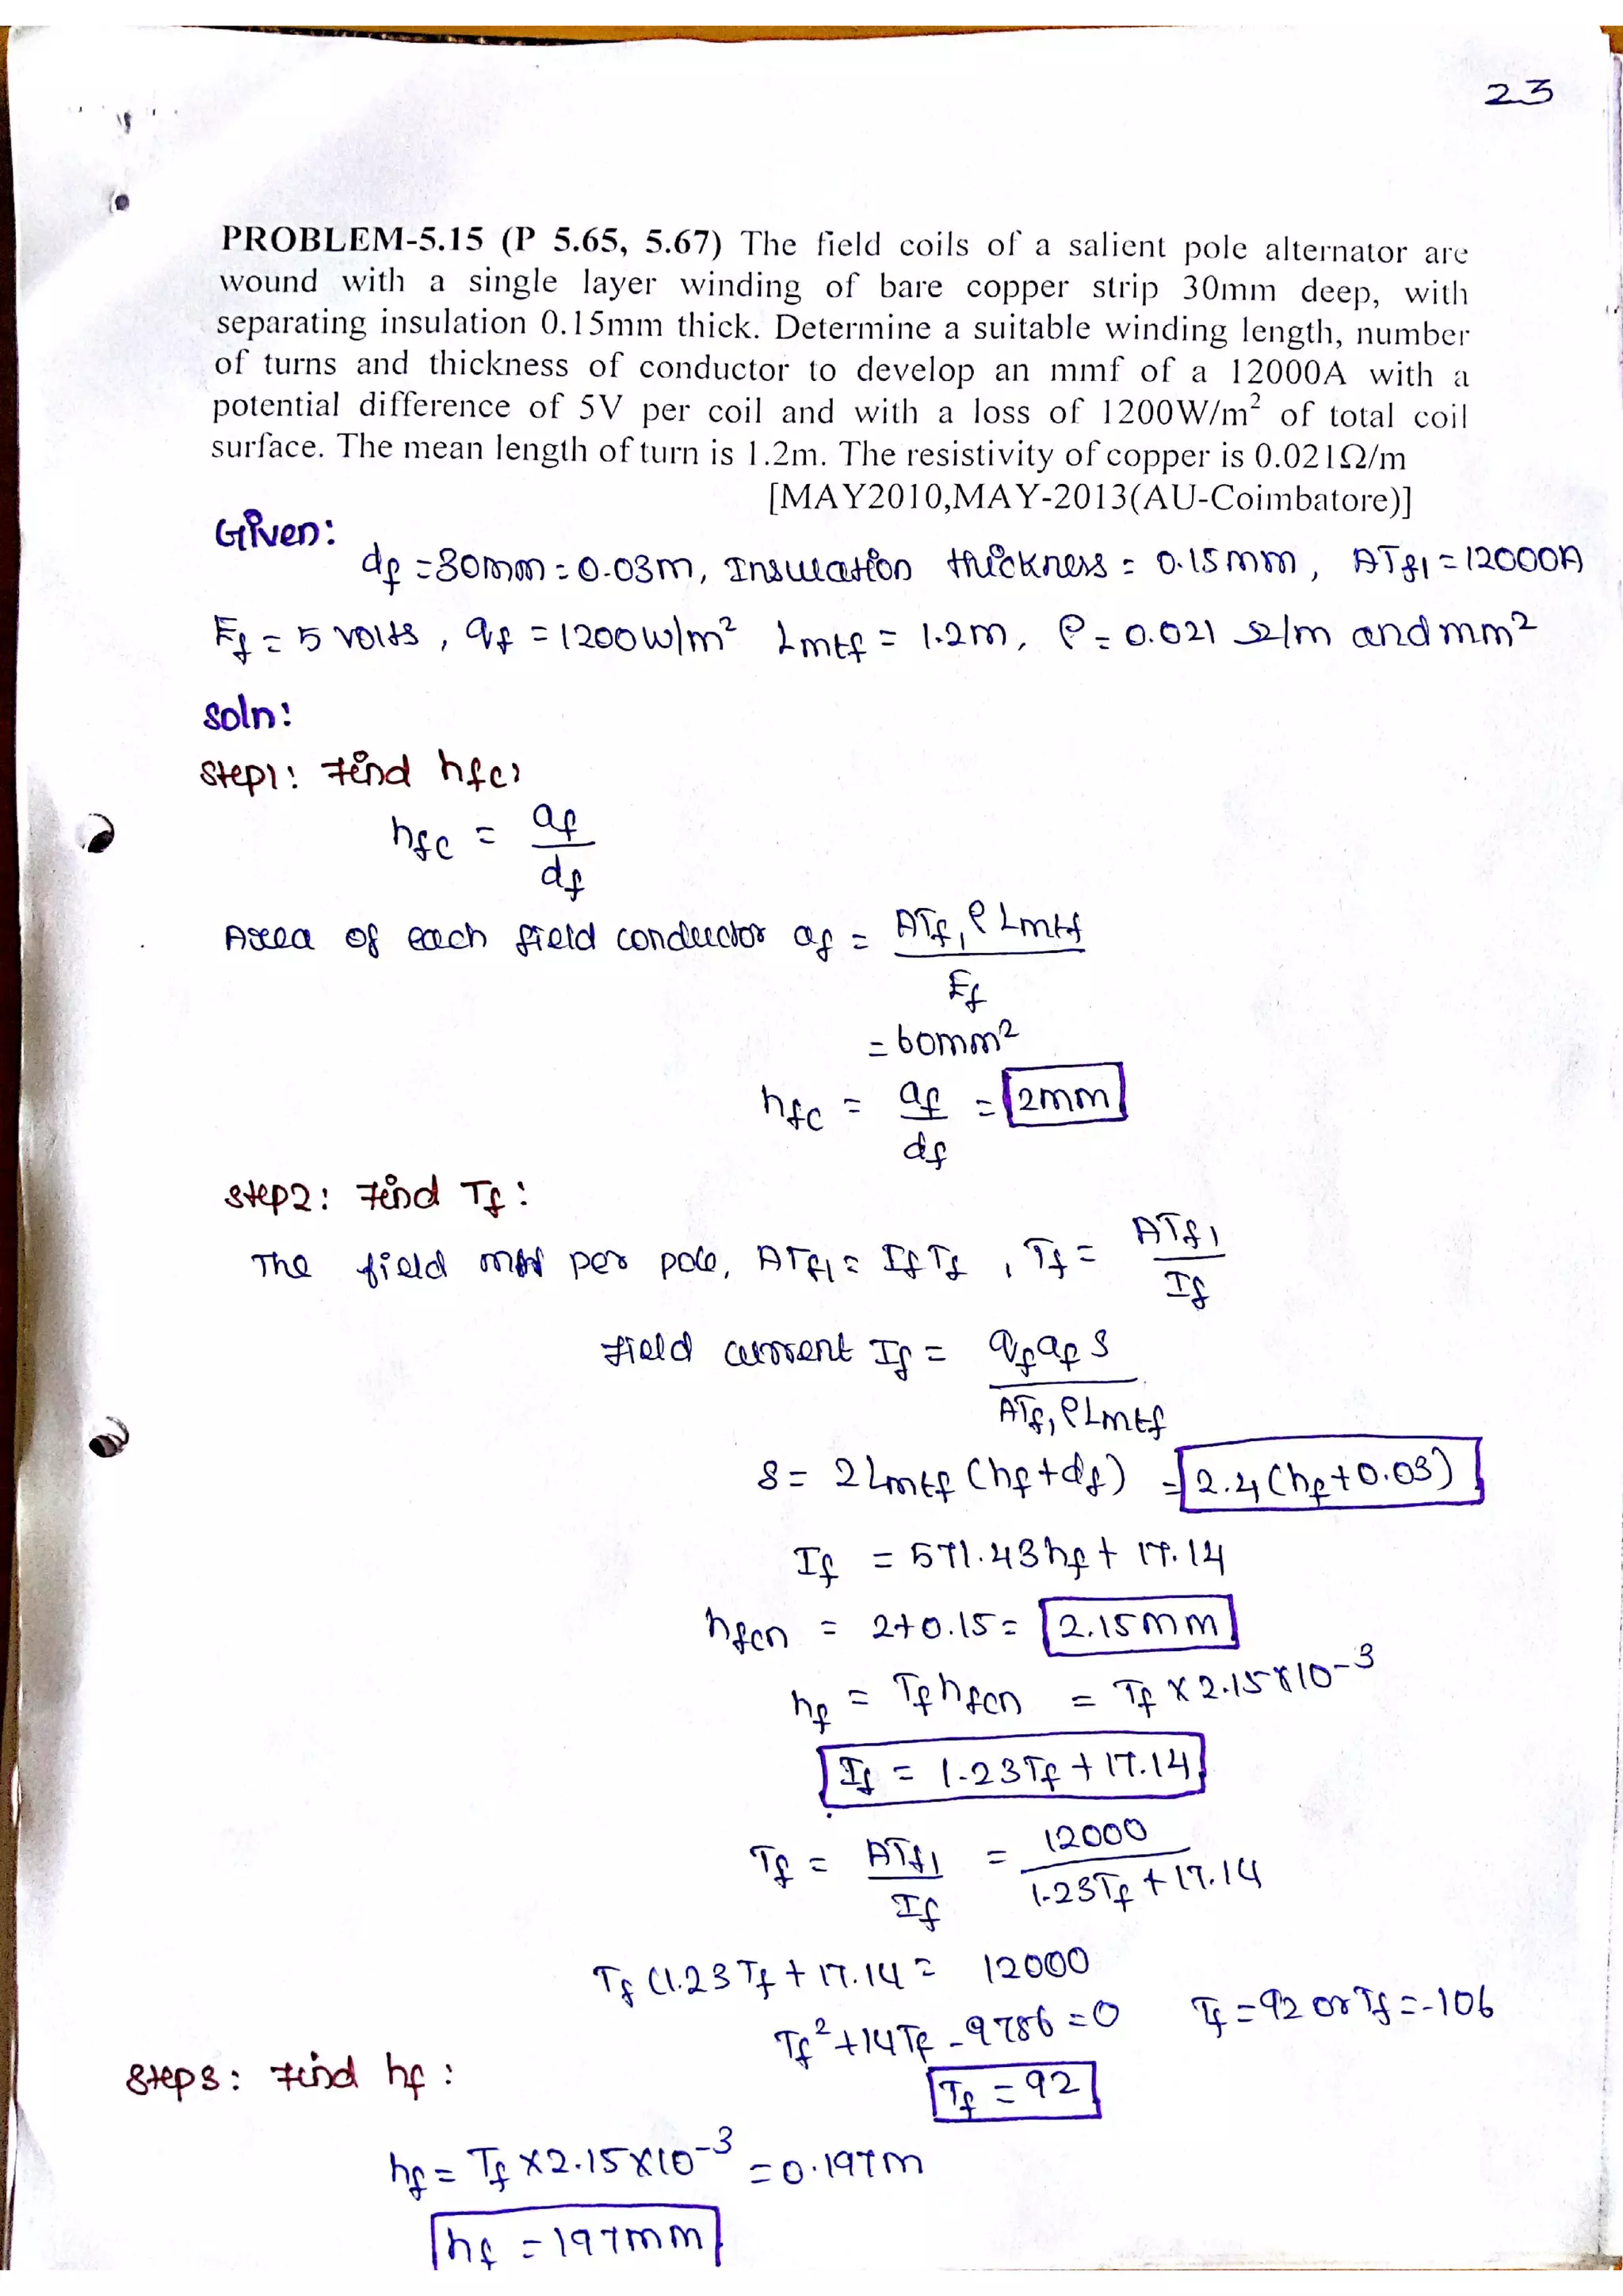 23
PROBLEM-5.15 (P 5.65, 5.67) The field coils of a salient pole alternator are
wound with a single layer winding of bare copper strip 30mm deep, with
separating insulation 0.15mm thick. Determine a suitable winding length, number
of turns and thickness of conductor to develop an mmf of a 12000A with a
potential difference of 5V per coil and with a loss of 1200W/m² of total coil
surface. The mean length of turn is 1.2m. The resistivity of copper is 0.021Ω/m
[MAY2010,MAY-2013(AU-Coimbatore)]
Given:
df = 30mm = 0.03m, Insulation thickness = 0.15mm, ATf1 = 12000A
Ef = 5 volts, qf = 1200w/m² Lmtf = 1.2m, ρ = 0.021 Ω/m and mm²
Soln:
Step1: Find hfc:
hfc = af / df
Area of each field conductor af = ATf1 ρ Lmtf / Ef
= 60mm²
hfc = af / df = 2mm
Step2: Find Tf:
The field mmf per pole, ATf1 = If Tf, Tf = ATf1 / If
Field current If = qf af S / ATf1 ρ Lmtf
S = 2 Lmtf (hf + df) = 2.4 (hf + 0.03)
If = 571.43 hf + 17.14
hfcn = 2+0.15 = 2.15mm
hf = Tf hfcn = Tf × 2.15×10⁻³
If = 1.23Tf + 17.14
Tf = ATf1 / If = 12000 / 1.23Tf + 17.14
Tf (1.23Tf + 17.14 = 12000
Tf² + 14Tf - 9786 = 0 Tf = 92 or Tf = -106
Tf = 92
Step3: Find hf:
hf = Tf × 2.15×10⁻³ = 0.197m
hf = 197mm